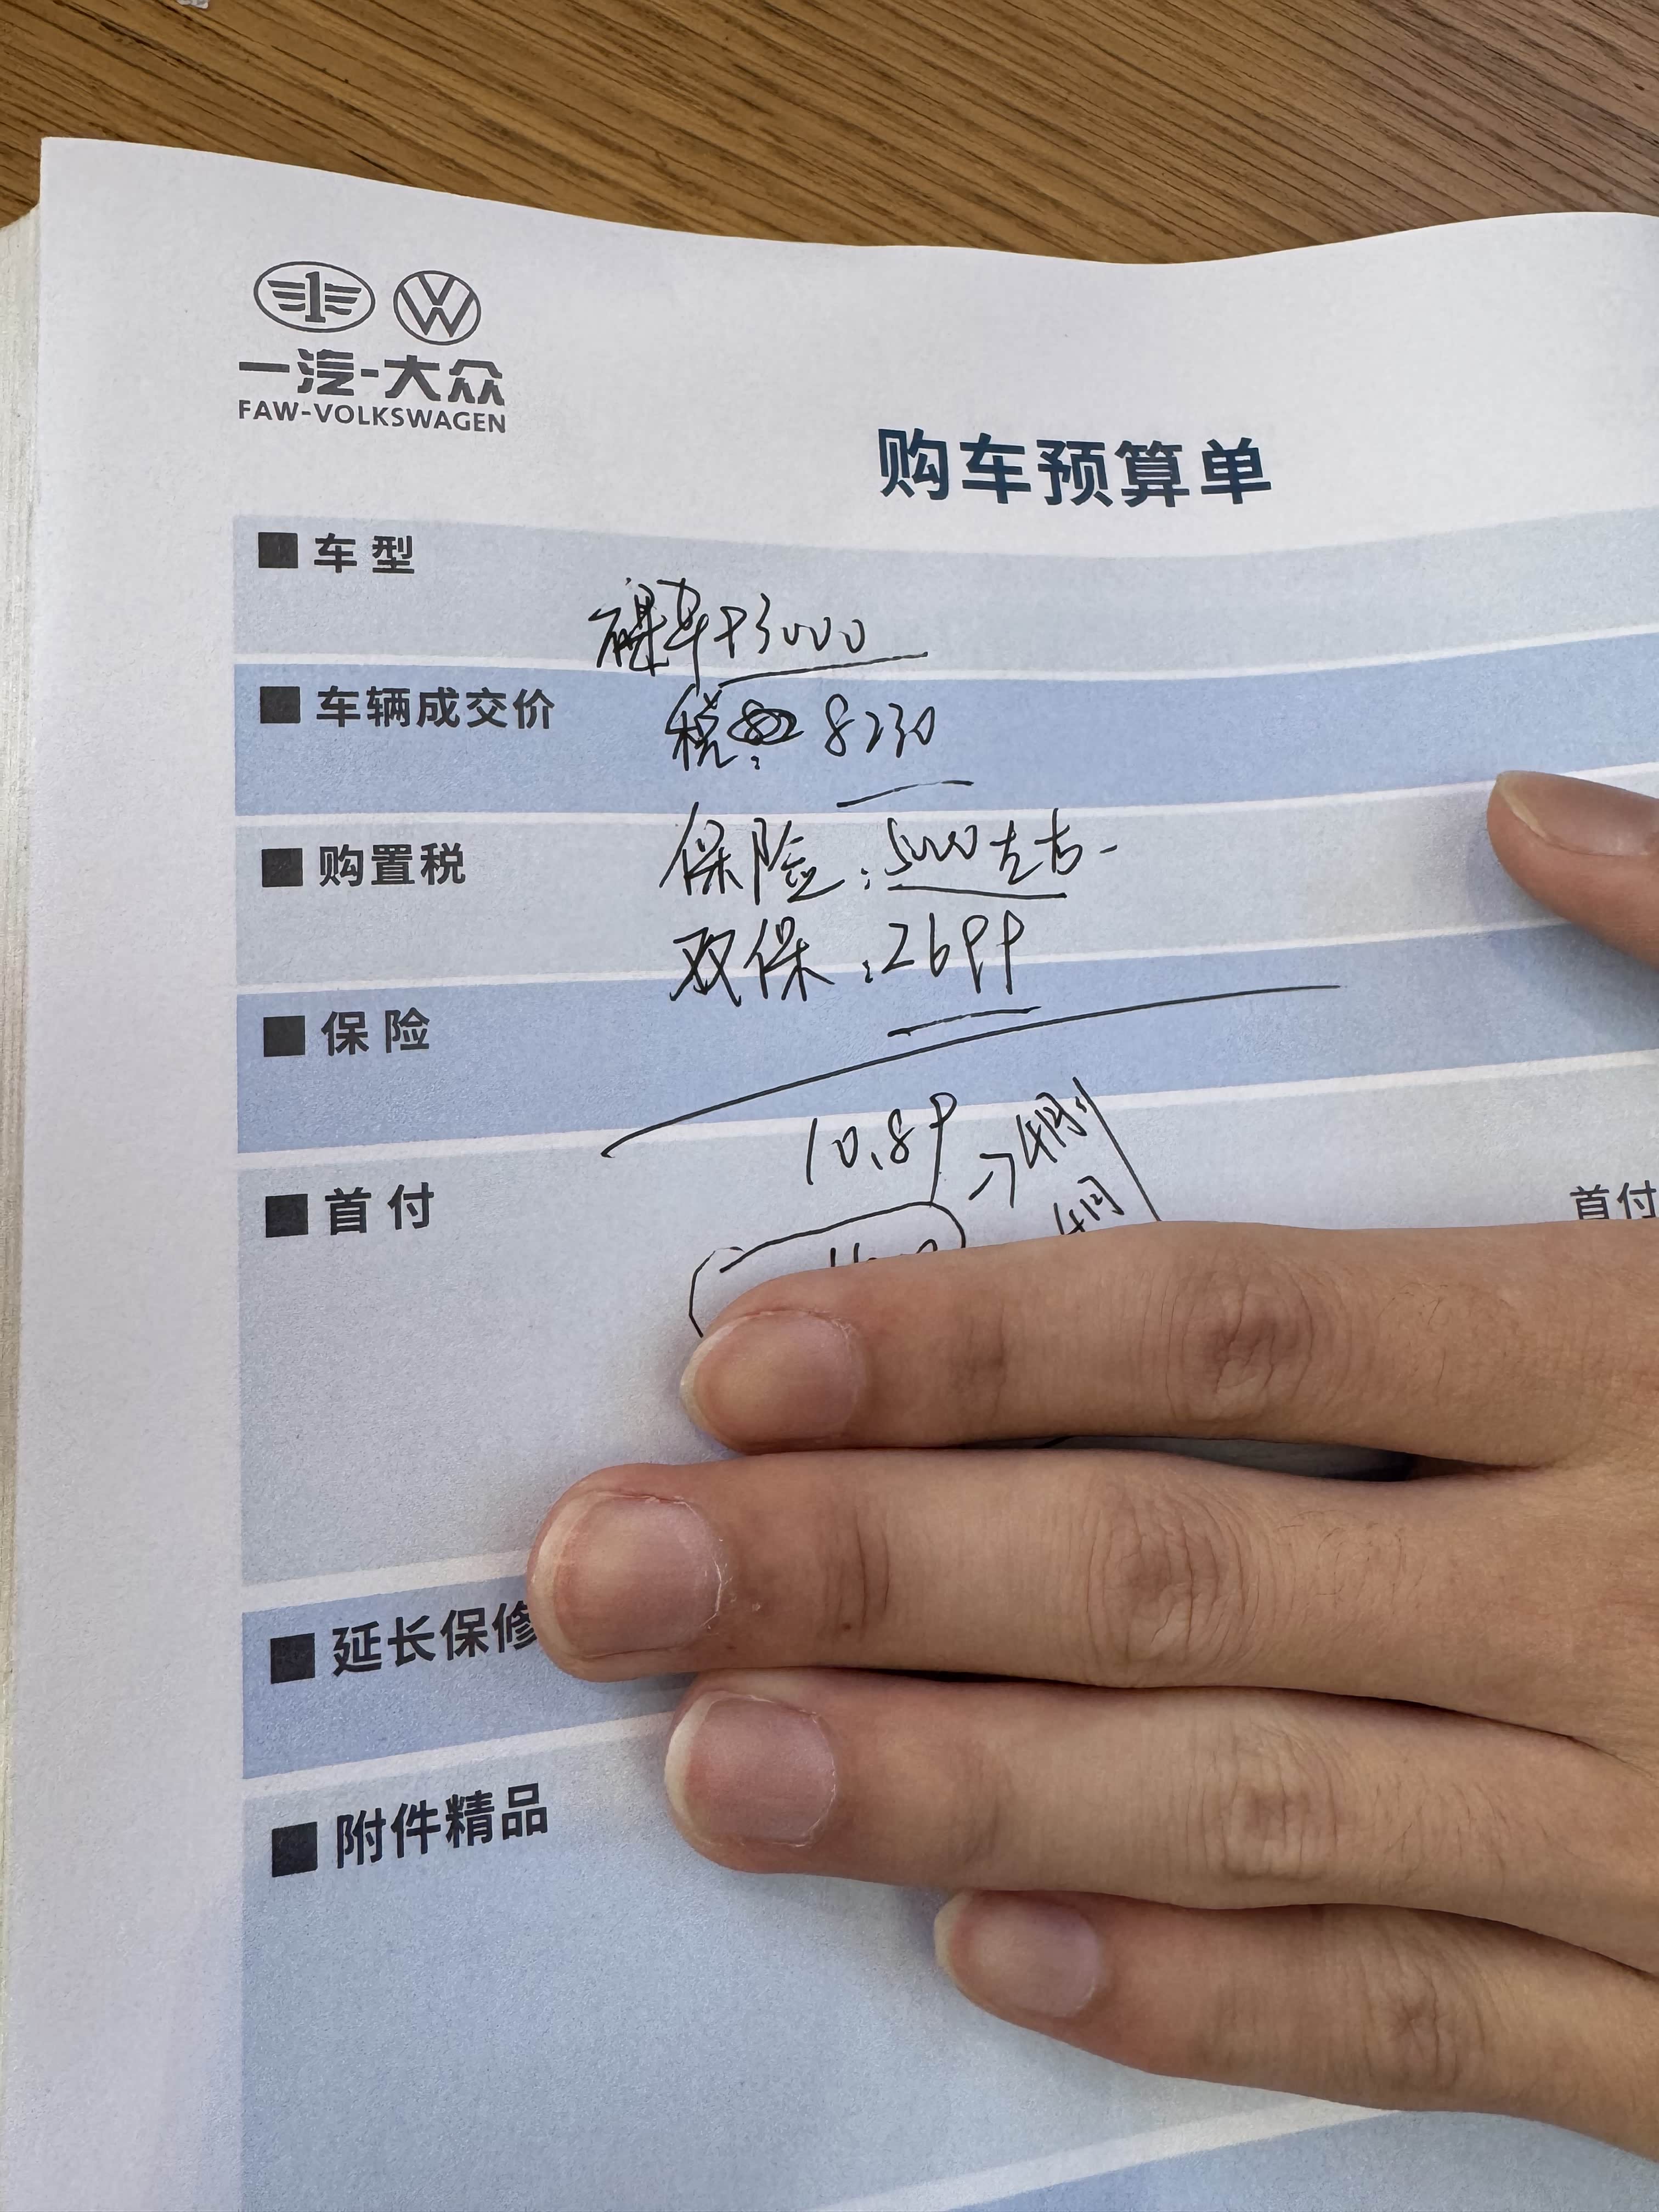 一汽-大众
FAW-VOLKSWAGEN
购车预算单
■ 车型
裸车93000
■ 车辆成交价
税: 8230
■ 购置税
保险:5000左右
双保:2699
■ 保险
10.89
■ 首付
首付
■ 延长保修
■ 附件精品